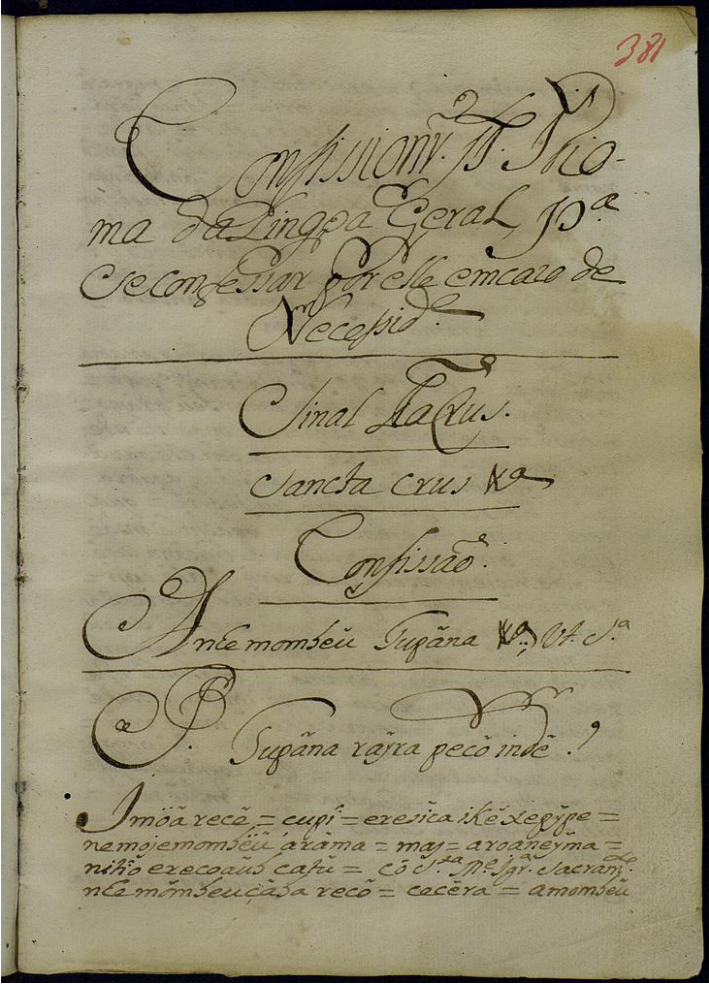 381
Confissionr. pª. Idio-
ma da Lingoa Geral, pª
se confessar por elle em cazo de
Necesside.
Sinal da Crus.
Sancta Crus
Confissaõ.
Anhemombeú Tupãna
P. Tupãna raÿra pecõ indê?
Imöã recê = cupî = eresica ikê xepÿpe =
nemojemombëú árãma = maj = aroaneÿma =
nitiõ erecoaub catú = cõ Stª Me Igrª Sacramto.
nhemõmbeuçába recõ = cecêra = amombeú